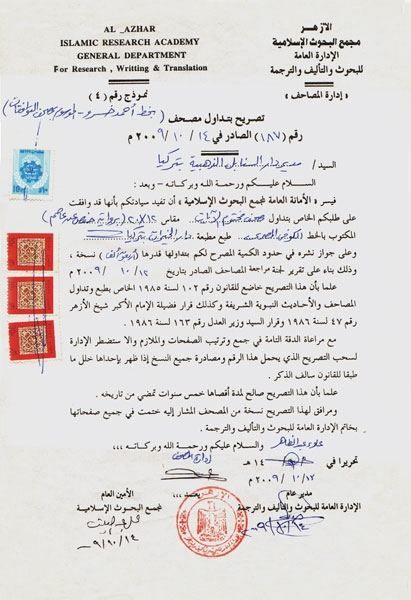 AL _AZHAR
ISLAMIC RESEARCH ACADEMY
GENERAL DEPARTMENT
For Research , Writting & Translation
الأزهــر
مجمع البحوث الإسلامية
الإدارة العامة
للبحوث والتأليف والترجمة
« إدارة المصاحف »
نموذج رقم ( ٤ )
تصريح بتداول مصحف
رقم (١٨٧) الصادر في ١٤ / ١٠ / ٢٠٠٩ م
السيد / مدير دار السنابل الذهبية بتركيا
السلام عليكم ورحمة الله وبركاته - وبعد :
فيسر « الأمانة العامة لمجمع البحوث الإسلامية » أن تفيد سيادتكم بأنها قد وافقت
على طلبكم الخاص بتداول مصحف مقاس ٢٠×١٤
المكتوب بالخط طبع مطبعة
وعلى جواز نشره في حدود الكمية المصرح لكم بتداولها قدرها نسخة ،
وذلك بناء على تقرير لجنة مراجعة المصاحف الصادر بتاريخ ١٢ / ١٠ / ٢٠٠٩ م
علما بأن هذا التصريح خاضع للقانون رقم ١٠٢ لسنة ١٩٨٥ الخاص بطبع وتداول
المصاحف والأحاديث النبوية الشريفة وكذلك قرار فضيلة الإمام الأكبر شيخ الأزهر
رقم ٤٧ لسنة ١٩٨٦ وقرار السيد وزير العدل رقم ١٦٣ لسنة ١٩٨٦ .
مع مراعاة الدقة التامة في جمع وترتيب الصفحات والملازم وإلا ستضطر الإدارة
لسحب التصريح الذي يحمل هذا الرقم ومصادرة جميع النسخ إذا ظهر بإحداها خلل ما
طبقا للقانون سالف الذكر .
علما بأن هذا التصريح صالح لمدة أقصاها خمس سنوات تمضي من تاريخه .
ومرافق لهذا التصريح نسخة من المصحف المشار إليه ختمت في جميع صفحاتها
بخاتم الإدارة العامة للبحوث والتأليف والترجمة .
والسلام عليكم ورحمة الله وبركاته ،،،
تحريرا في ١٤ هـ
إدارة المصاحف
١٢ / ١٠ / ٢٠٠٩ م
مدير عام
الإدارة العامة للبحوث والتأليف والترجمة
يعتمد ،،،
الأمين العام
لمجمع البحوث الإسلامية
١٤ / ١٠ / ٩